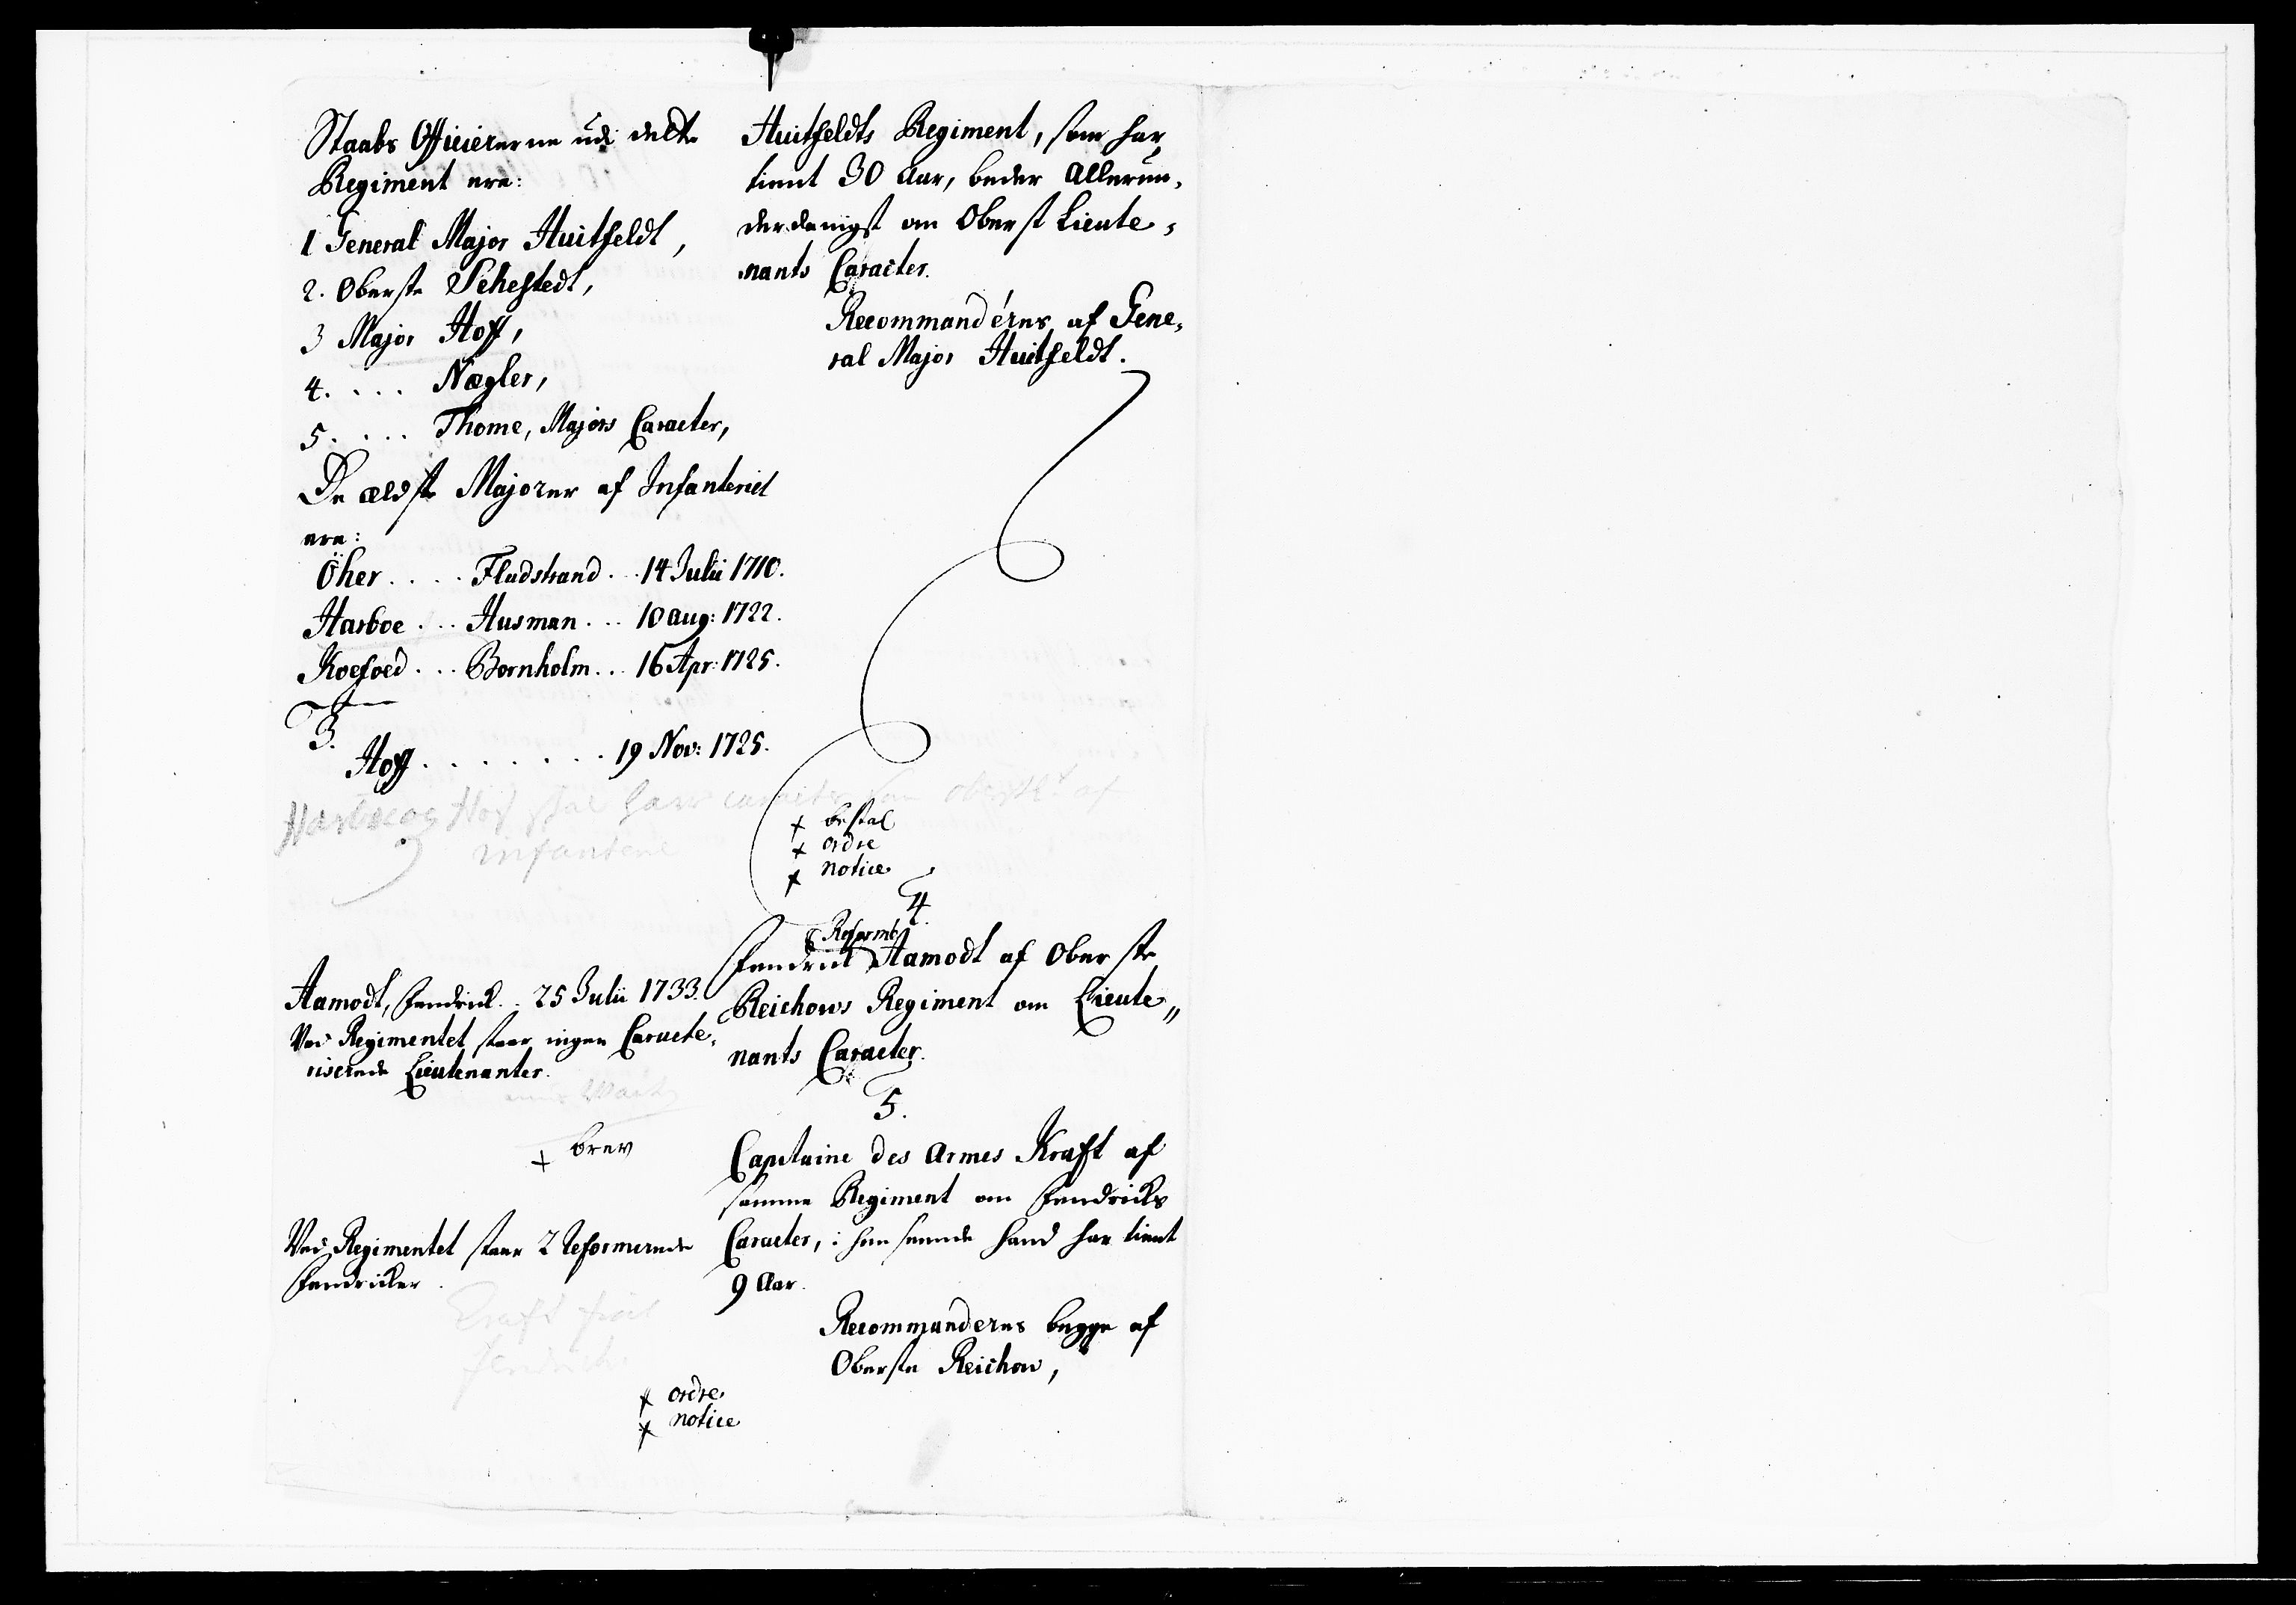 Staabs Officiererne udi dette
Regiment ere:
1 General Major Huitfeldt,
2. Oberste Sehestedt,
3 Major Hoff,
4. . . . Nægler,
5. . . . Thome, Majors Caracter,
De ældste Majorer af Infanteriet
ere:
Öher . . . . Fladstrand . . . 14 Julii 1710.
Harboe . . . Husman . . . 10 Aug: 1722.
Koefoed . . . Bornholm . . . 16 Apr: 1725.
3.
Hoff . . . . . . . . 19 Nov: 1725.
Harboe og Hoff skal have caracter som oberstlt af
infanterie
Aamodt, Fendrick . . 25 Julii 1733.
Ved Regimentet staar ingen Caracte-
riserede Lieutenanter.
+ brev
Ved Regimentet staar 2 Reformerede
Fendricker.
Kraft
Fendrich
+ ordre
+ notice
Huitfeldts Regiment, som har
tient 30 Aar, beder Allerun-
derdanigst om Oberst Lieute-
nants Caracter.
Recommandéres af Gene-
ral Major Huitfeldt.
+ bestal
+ ordre
+ notice
4.
Reformt
Fendrick Aamodt af Oberste
Reichows Regiment om Lieute-
nants Caracter.
5.
Capitaine des Armes Kraft af
samme Regiment om Fendricks
Caracter, i hvis stand hand har tient
9 Aar.
Recommanderes begge af
Oberste Reichow,